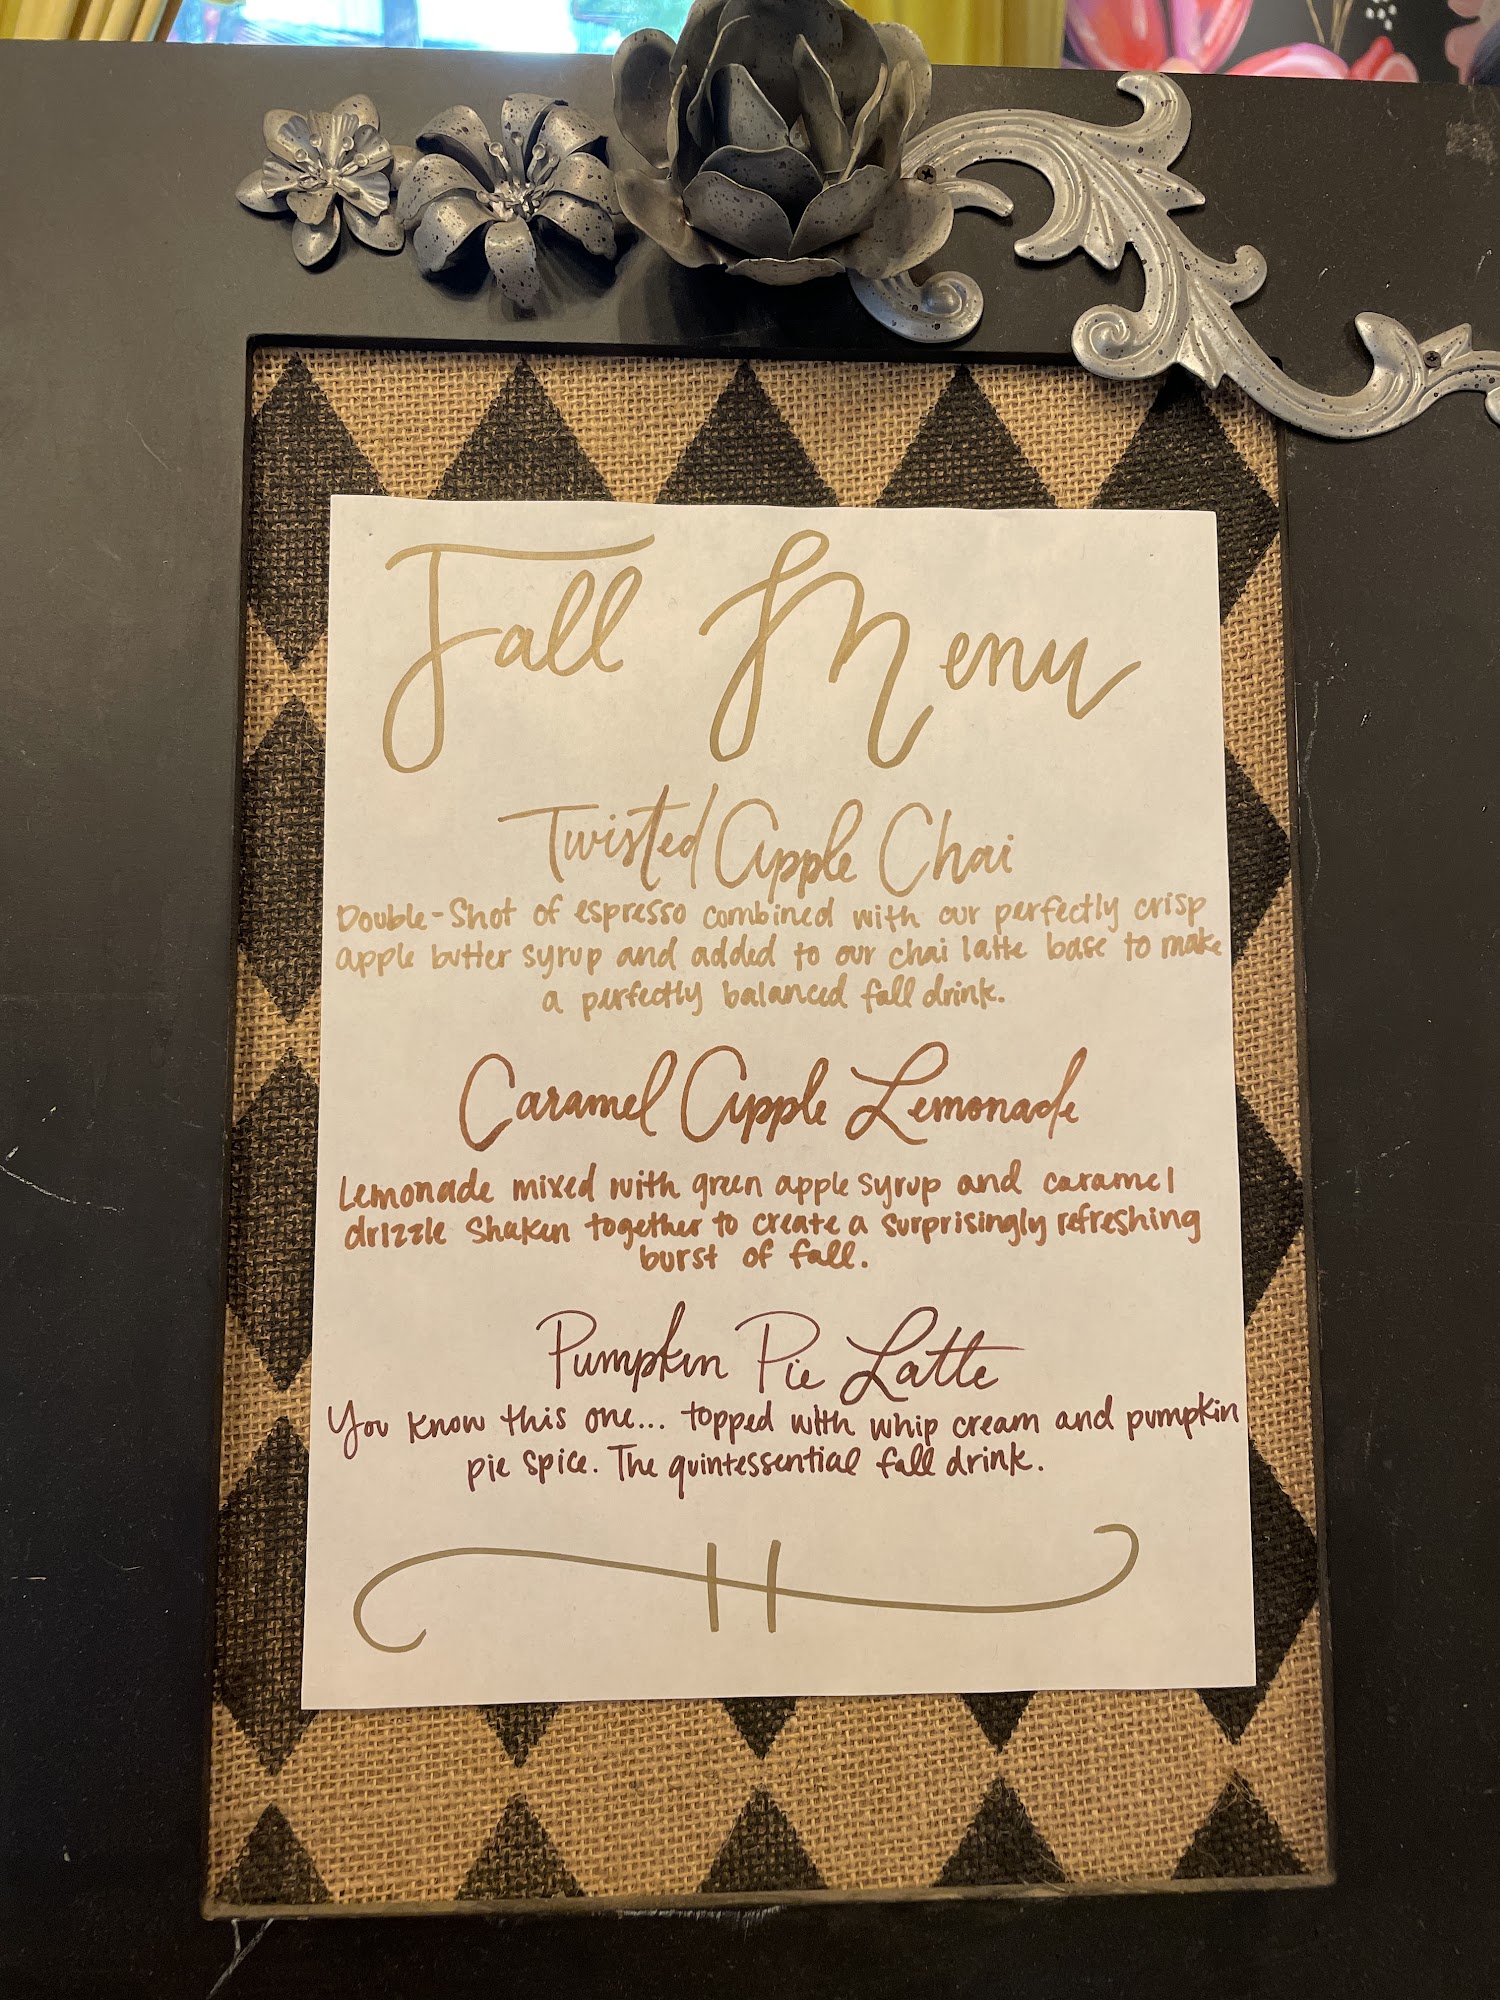 Fall Menu
Twisted Apple Chai
Double-Shot of espresso combined with our perfectly crisp
apple butter syrup and added to our chai latte base to make
a perfectly balanced fall drink.
Caramel Apple Lemonade
Lemonade mixed with green apple syrup and caramel
drizzle shaken together to create a surprisingly refreshing
burst of fall.
Pumpkin Pie Latte
You know this one... topped with whip cream and pumpkin
pie spice. The quintessential fall drink.